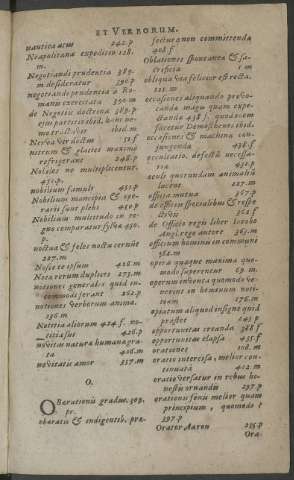 ET VERBORUM.
nautica acus 242.p
Neapolitana expeditio 128.
m.
Negotiandi prudentia 389.
m. desideratur 390.p
negotiandi prudentia a Ro
manis exercitata 390.m
de Negotiis doctrina 389.p
ibid.m
Nerva ver doctus 51.f
nitrum & glacies maxime
refrigerant 248.p
Notales ne multiplicentur.
451.p.
nobilium famuli 451.p
Nobilium mancipia & ope-
rarii sunt plebs 450.p
Nobilium multitudo in re-
gno comparatur sylvae 450.
p.
noctua & feles noctu cernut
227.m.
Nosce te ipsum 426.m
Nota rerum duplices 273.m
notiones generales quid in-
commodi ferant 262.p
notiones verborum anima.
296.m
Notitia aliorum 424.f no-
titia sui 426.p
novitas natura humana gra-
ta 406.m
novitatis amor 357.m
O.
OBaerationis gradus. 309.
pr.
obaeratis & endigentib. pre-
fectura non committenda
408.f
Oblationes spontanea & sa-
crificia r m
obliqua via felicior est recta.
111.m
occasiones aliquando provo-
canda magis quam expe-
ctanda 438.f. quod idem
facetur Demosthenes ibid.
occasiones & machina con-
jungenda 438.f
occultatio. defectus necessa-
ria 430.p
oculi quorundam animaliu
lucent 227.m
officia mutua 367.p
de officiis specialibus & respe
ctivis 362.f
de Officio regis liber Iacobo
Angl. rege autore 363.m
officium hominis in communi
362.m
opera quaque maxima quo-
modo superentur 69.m
operum inventa quomodo ve-
nerint in hominum noti-
tiam 276.m
opiatum aliquod insigne quid
praestet 245.p
opportunitas creanda 388.f
opportunitas elapsa 435.f
orationes 108.m
oratio intercisa, melior con-
tinuata 402.m
oratio versatur in rebus ho-
nestis ornandis 297.p
orationis finis melior quam
principium, quomodo t
397.p
Orator Aaron 235.p
Ora-